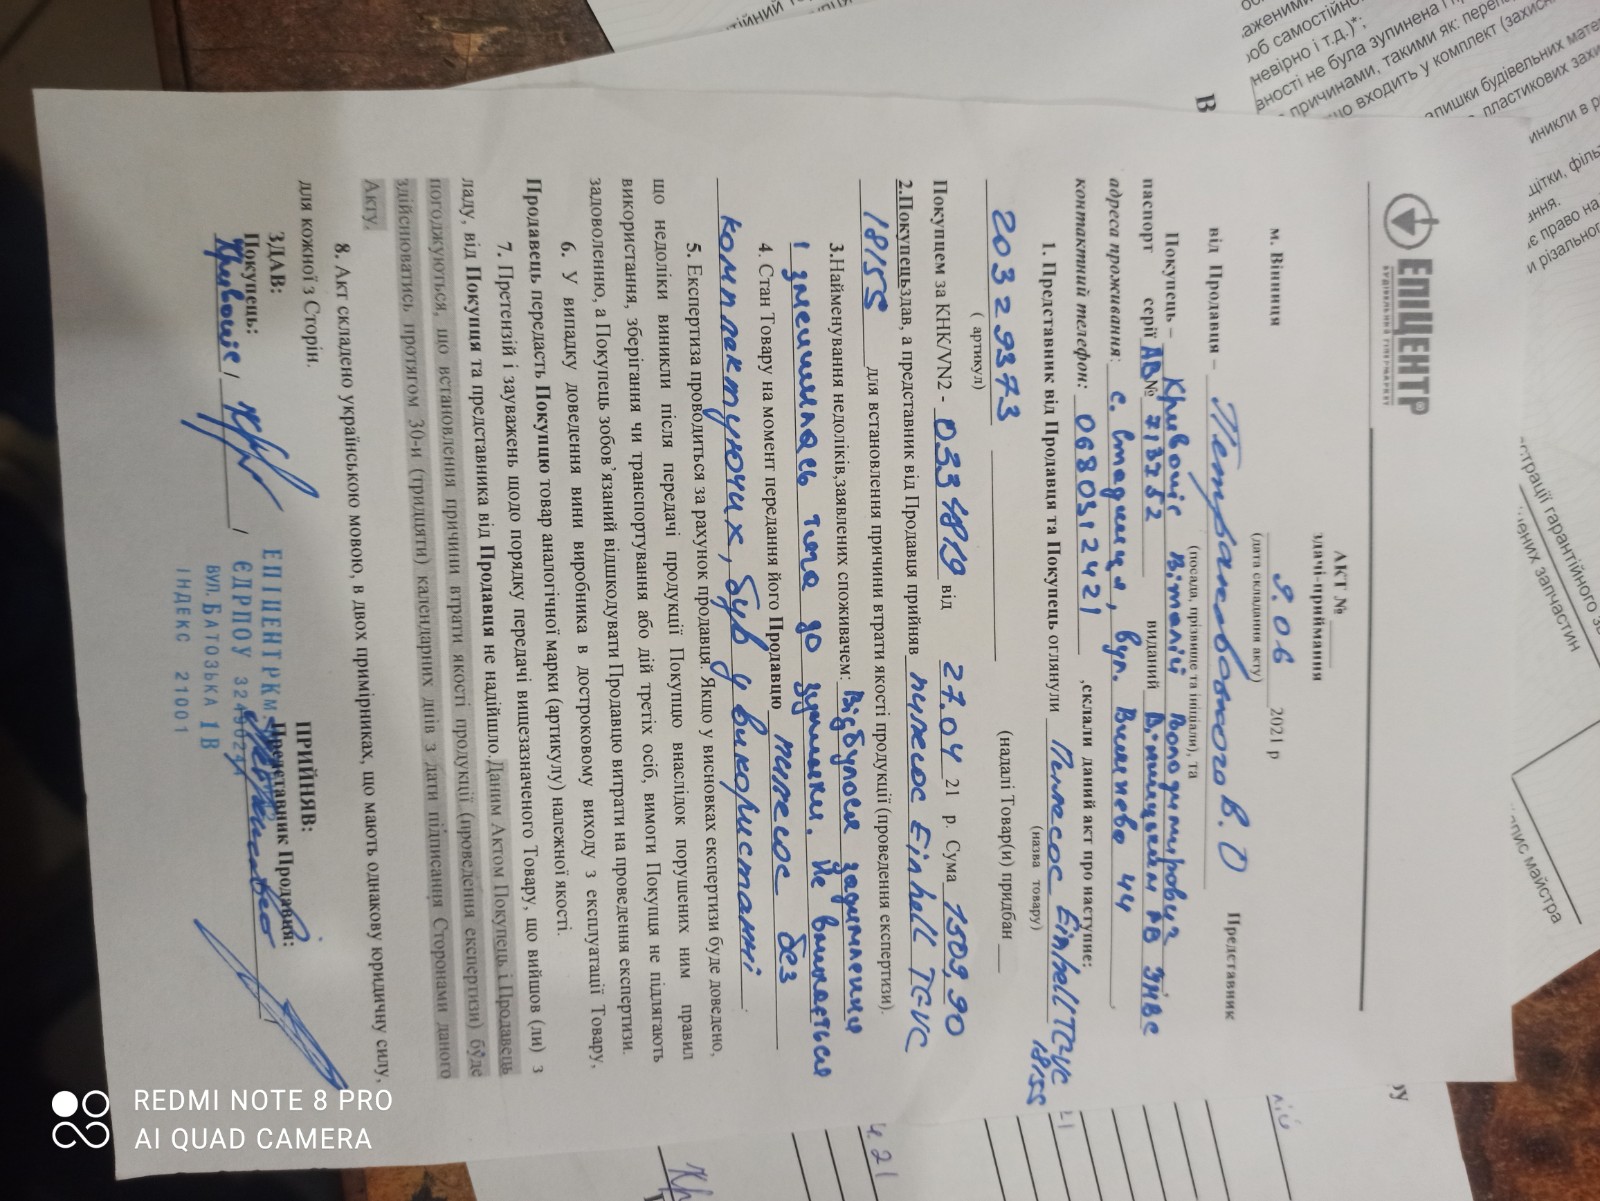 ЕПІЦЕНТР
БУДІВЕЛЬНИЙ ГІПЕРМАРКЕТ
АКТ №
здачі-приймання
м. Вінниця 9.06 2021 р
(дата складання акту)
від Продавця – В. О Представник
(посада, прізвище та ініціали), та
Покупець – Кривовіс Віталій Володимирович
паспорт серії АВ № 713252 виданий Вінницьким РВ УМВС
адреса проживання: с. Стадниця, вул. Вишнева 44
контактний телефон: 0680312421 ,склали даний акт про наступне:
1. Представник від Продавця та Покупець оглянули Пилесос Einhell TC-VC
(назва товару)
18155
20329373 (надалі Товар(и) придбан
( артикул)
Покупцем за КНК/VN2 - 0334819 від 27.04 21 р. Сума 1509,90
2.Покупецьздав, а представник від Продавця прийняв пилесос Einhell TC-VC
18155 для встановлення причини втрати якості продукції (проведення експертизи).
3.Найменування недоліків,заявлених споживачем: Відбулося задимлення
і зменшилась тяга до зупинки. Не вмикається
4. Стан Товару на момент передання його Продавцю пилесос без
комплектуючих, був у використанні
5. Експертиза проводиться за рахунок продавця. Якщо у висновках експертизи буде доведено,
що недоліки виникли після передачі продукції Покупцю внаслідок порушених ним правил
використання, зберігання чи транспортування або дій третіх осіб, вимоги Покупця не підлягають
задоволенню, а Покупець зобов'язаний відшкодувати Продавцю витрати на проведення експертизи.
6. У випадку доведення вини виробника в достроковому виході з експлуатації Товару,
Продавець передасть Покупцю товар аналогічної марки (артикулу) належної якості.
7. Претензій і зауважень щодо порядку передачі вищезазначеного Товару, що вийшов (ли) з
ладу, від Покупця та представника від Продавця не надійшло. Даним Актом Покупець і Продавець
погоджуються, що встановлення причини втрати якості продукції (проведення експертизи) буде
здійснюватись протягом 30-и (тридцяти) календарних днів з дати підписання Сторонами даного
Акту.
8. Акт складено українською мовою, в двох примірниках, що мають однакову юридичну силу,
для кожної з Сторін.
ЗДАВ: ПРИЙНЯВ:
Покупець: Представник Продавця:
Кривовіс / /
ЕПІЦЕНТР К
ЄДРПОУ
ВУЛ. БАТОЗЬКА 1В
ІНДЕКС 21001
REDMI NOTE 8 PRO
AI QUAD CAMERA
невірно і т.д.)*;
вності не була зупинена
причинами, такими як:
входить у комплект
пластикових
право на
трації гарантійного
запчастин
майстра
4.21